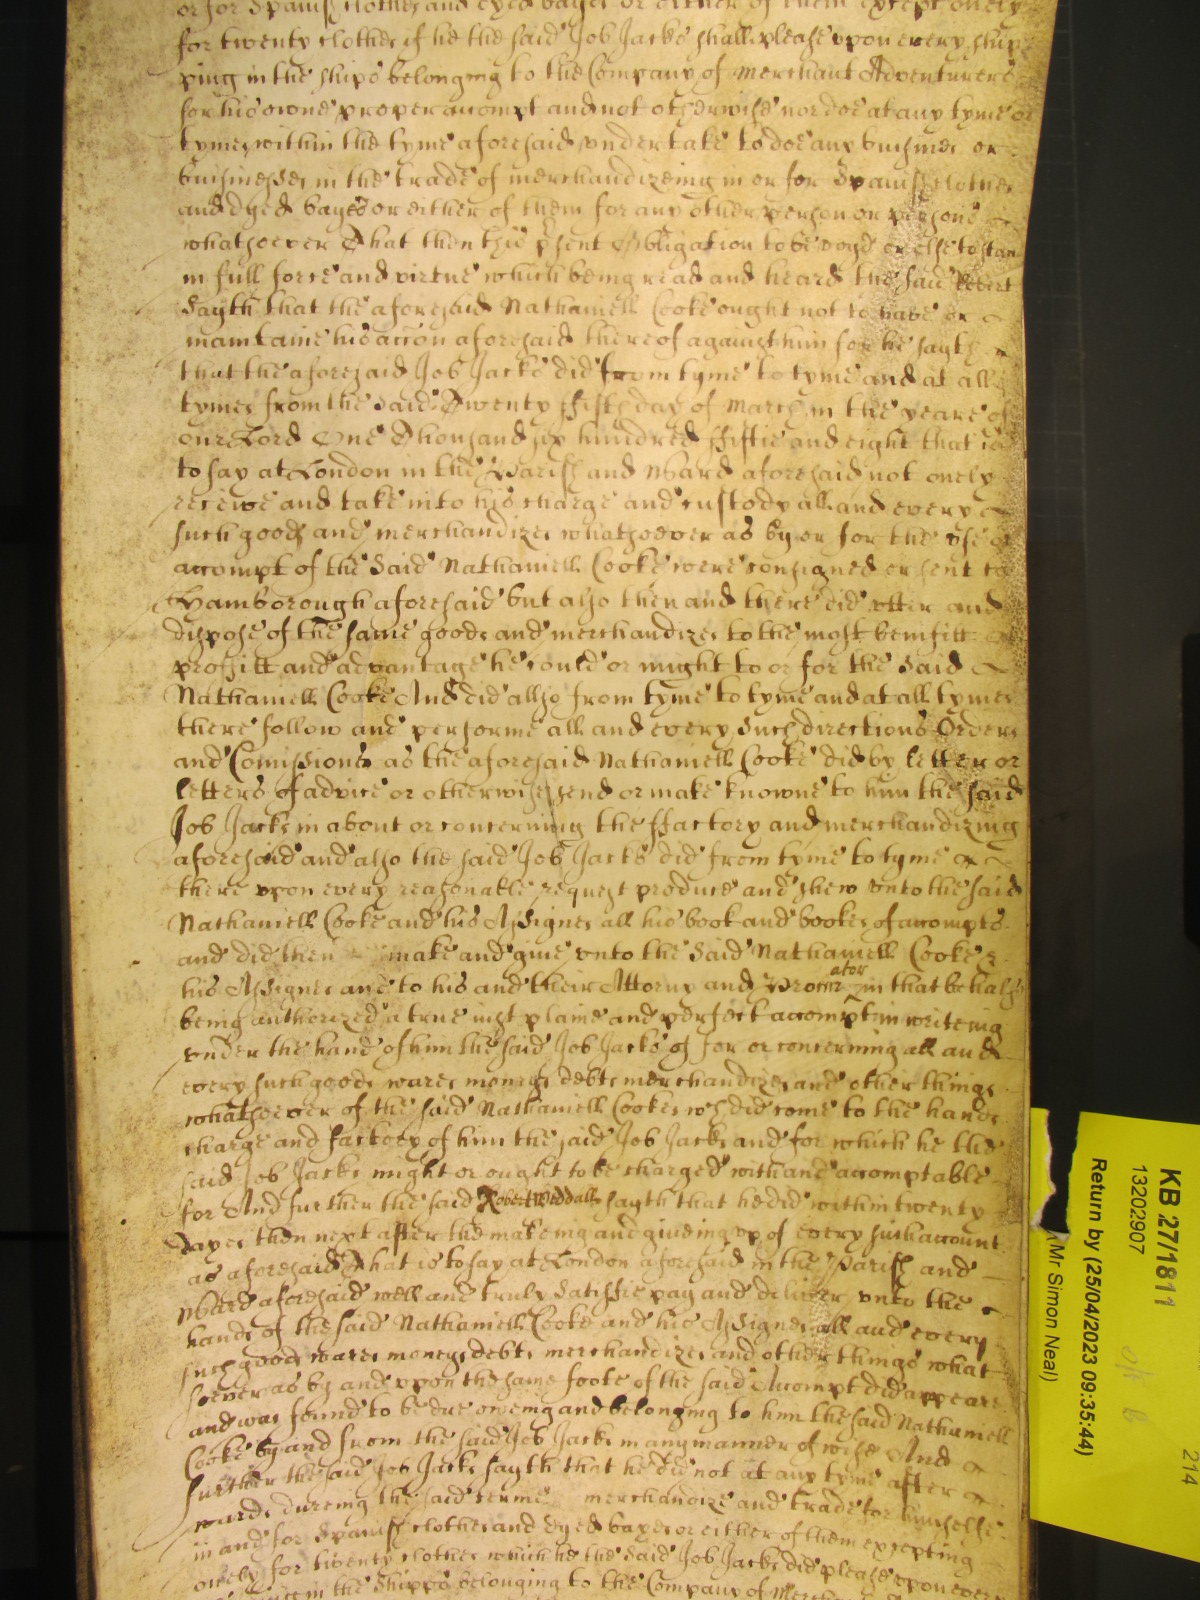 or for Spanish clothes and dyed bayes or either of them except onely
for twenty clothes if he the said Job Jacks shall please vpon every ship
ping in the ships belonging to the Company of Merchant Adventurers
for his owne proper accompt and not otherwise nor doe at any tyme or
tymes within the tyme aforesaid vndertake to doe any busines or
businesses in the trade of merchandizeing in or for Spanish clothes
and dyed bayes or either of them for any other person or persons
whatsoever That then this psent Obligation to be voyd or else to stan
in full force and virtue which being read and heard the said Robert
Sayth that the aforesaid Nathaniell Cooke ought not to have or
maintaine his accon aforesaid thereof against him for he sayth
that the aforesaid Job Jacks did from tyme to tyme and at all
tymes from the said Twenty ffifth day of March in the yeare of
our Lord One Thousand six hundred ffiftie and eight that is
to say at London in the Parish and Ward aforesaid not onely
receive and take into his charge and custody all and every
such goods and merchandizes whatsoever as by or for the vse or
accompt of the said Nathaniell Cooke were consigned or sent to
Hamborough aforesaid but also then and there did vtter and
dispose of the same goods and merchandizes to the most benifitt
proffitt and advantage he could or might to or for the said
Nathaniell Cooke And did allso from tyme to tyme and at all tymes
there follow and performe all and every such directions Orders
and Comissions as the aforesaid Nathaniell Cooke did by letter or
letters of advice or otherwise send or make knowne to him the said
Job Jacks in about or concerning the ffactory and merchandizing
aforesaid and also the said Job Jacks did from tyme to tyme
there vpon every reasonable request produce and shew vnto the said
Nathaniell Cooke and his Assignes all his book and bookes of accompts
and did then make and give vnto the said Nathaniell Cooke
his Assignes and to his and their Attorny and in that behalf
being authorized a true iust plaine and perfect accompt in writeing
vnder the hand of him the said Job Jacks of for or concerning all and
every such goods wares moneys debts merchandizes and other things
whatsoever of the said Nathaniell Cookes wch did come to the hands
charge and factory of him the said Job Jacks and for which he the
said Job Jacks might or ought to be charged with and accomptable
for And further the said Robert Weddall sayth that he did within twenty
dayes then next after the makeing and giveing vp of every such account
as aforesaid That is to say at London aforesaid in the Parish and
Ward aforesaid well and truly satisfie pay and deliver vnto the
hands of the said Nathaniell Cooke and his Assignes all and every
such goods wares moneys debts merchandizes and other things what
soever as by and vpon the same foote of the said Accompt did appeare
and was found to be due oweing and belonging to him the said Nathaniell
Cooke by and from the said Job Jacks in any manner of wise And
further the said Job Jacks sayth that he did not at any tyme after
wards dureing the said terme merchandize and trade for himselfe
in and for Spanish clothes and dyed bayes or either of them excepting
onely for twenty clothes which he the said Job Jacks did please vpon every
in the Shipps belonging to the Company of
KB 27/1811
13202907
Return by (25/04/2023 09:35:44)
(Mr Simon Neal)
214